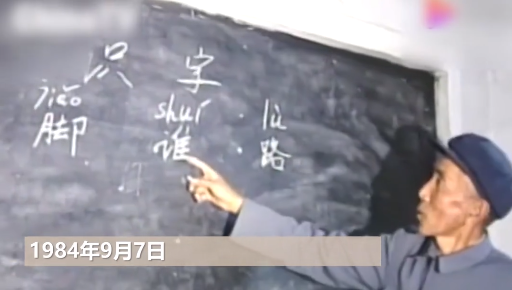 识字
jiǎo shuí lù
脚 谁 路
1984年9月7日